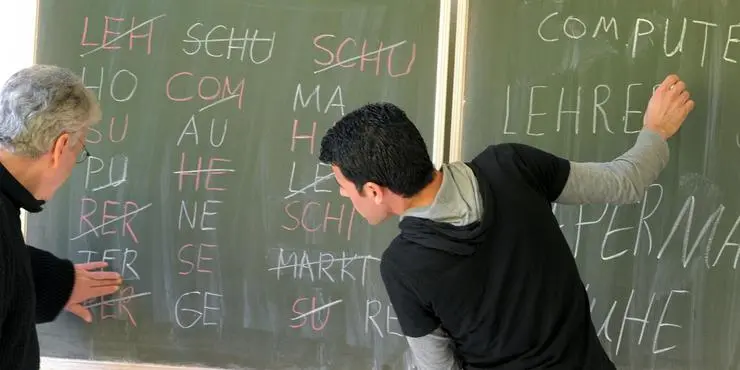 LEH SCHU SCHU
HO COM MA
SU AU H
PU HE LE
RER NE SCHI
TER SE MARKT
TER GE SU RE
COMPUTE
LEHRE
PERMA
ÜHE